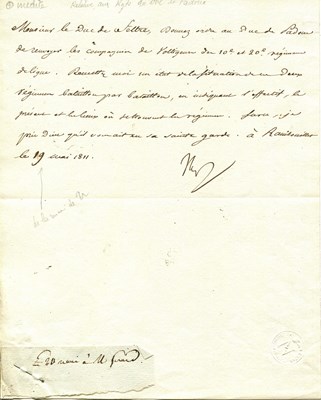 inédite
Monsieur le Duc de Feltre, Donnez ordre au Duc de Padoue
de renvoyer les compagnies de Voltigeurs des 10e et 20e régimens
de ligne. Remettez moi un état de la situation de ces deux
régimens bataillon par bataillon, en indiquant l'effectif, le
présent et les lieux où se trouvent les régimens. Sur ce, je
prie Dieu qu'il vous ait en sa sainte garde. à Rambouillet
le 19 mai 1811.
Np
Le 20 mai à M. Gérard.